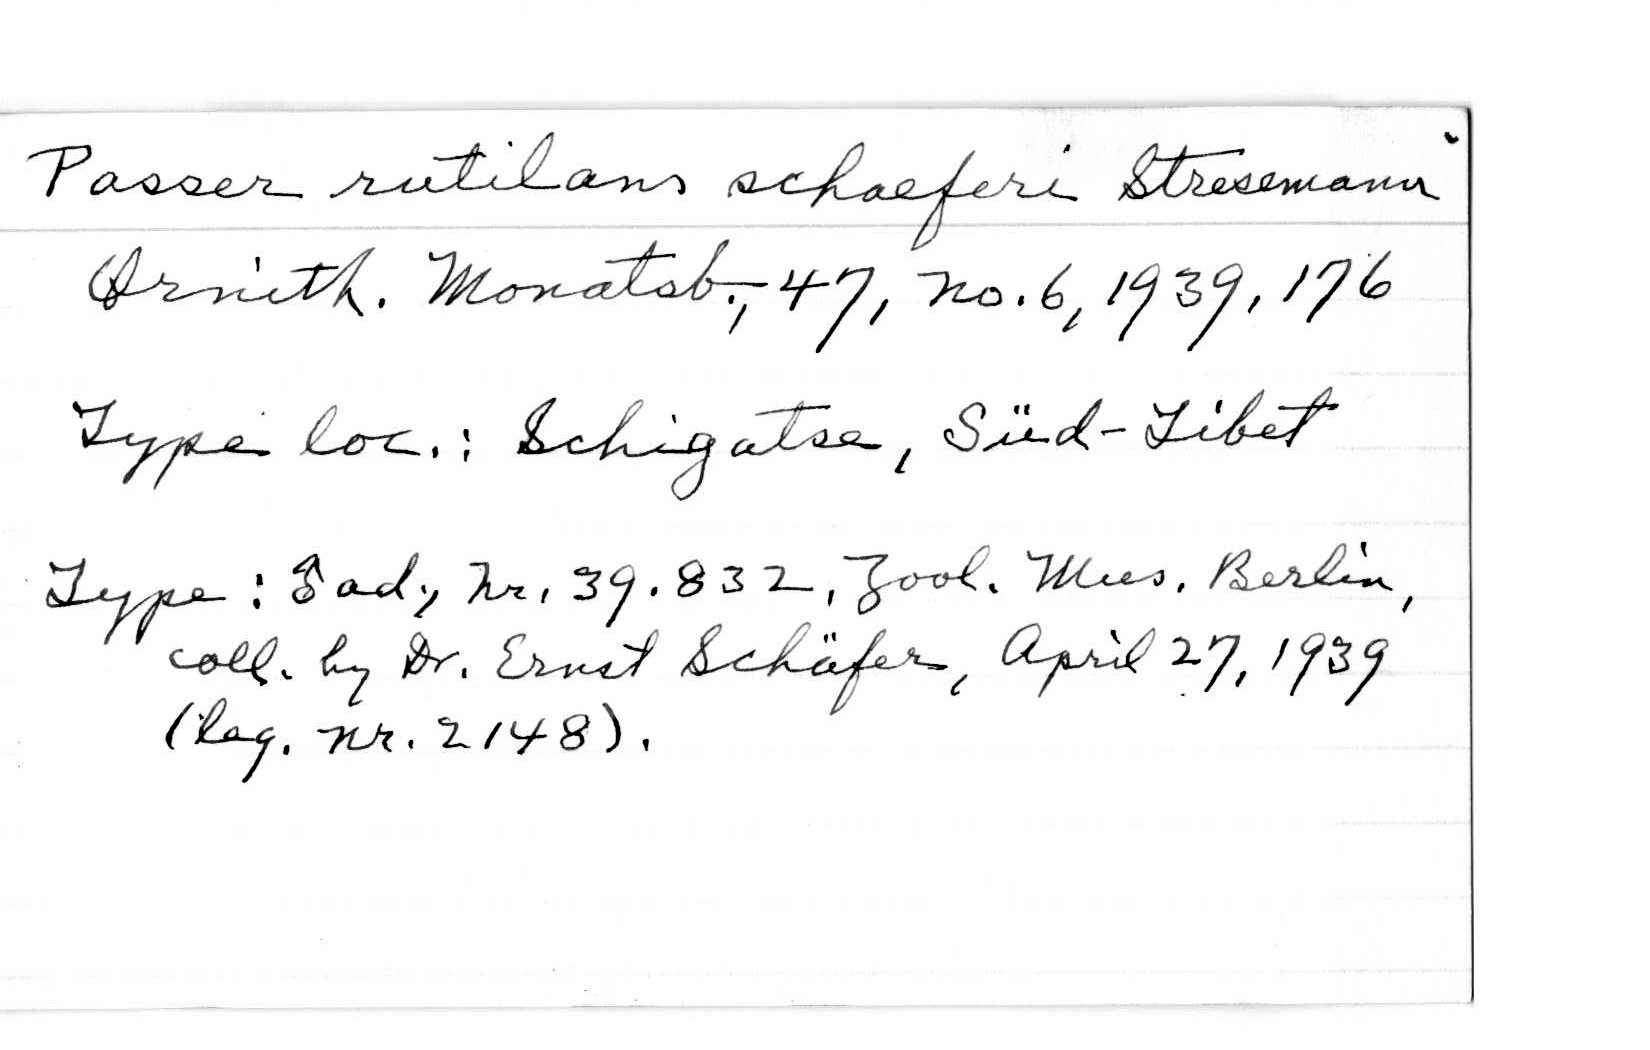 Passer rutilans schaeferi Stresemann
Ornith. Monatsb., 47, no. 6, 1939, 176
Type loc.: Schigatse, Süd-Tibet
Type: ♂ ad., Nr. 39.832, Zool. Mus. Berlin,
coll. by Dr. Ernst Schäfer, April 27, 1939
(leg. nr. 2148).